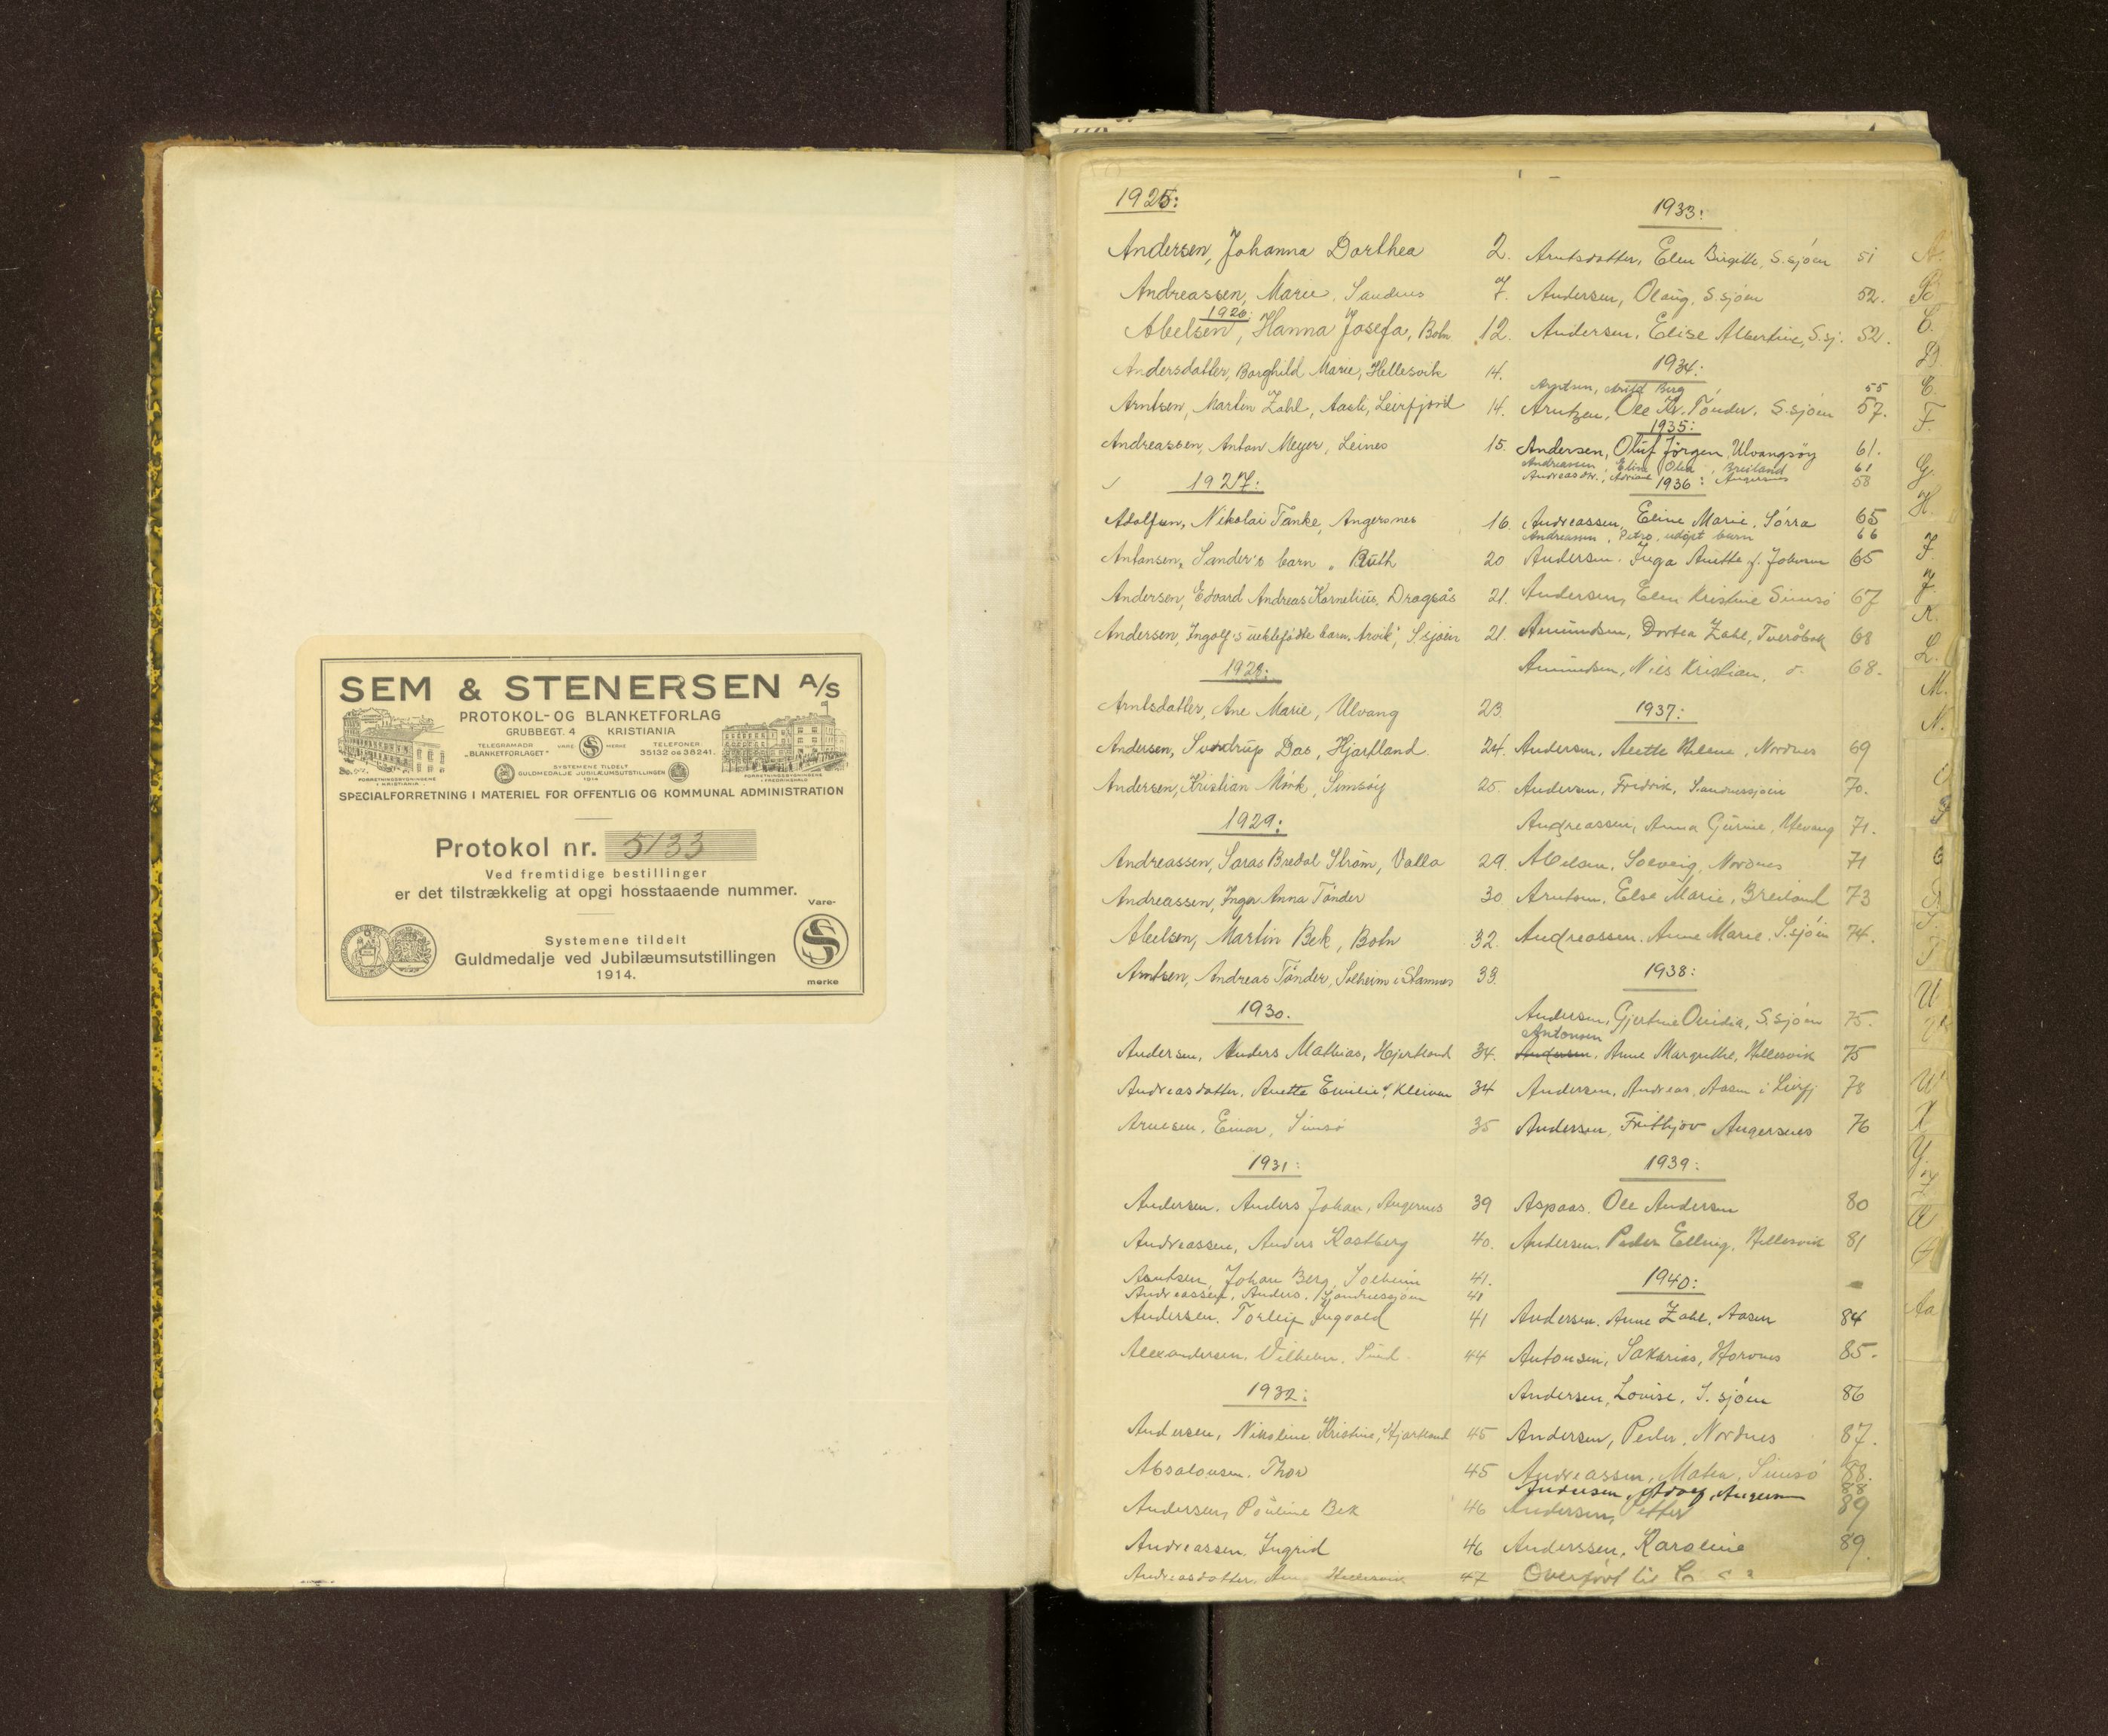 SEM & STENERSEN A/S
PROTOKOL- OG BLANKETFORLAG
GRUBBEGT. 4 KRISTIANIA
TELEGRAMADR „BLANKETFORLAGET" VARE MERKE TELEFONER 35132 OG 38241.
SYSTEMENE TILDELT
GULDMEDALJE JUBILÆUMSUTSTILLINGEN
1914
FORRETNINGSBYGNINGENE I KRISTIANIA
FORRETNINGSBYGNINGENE I FREDRIKSHALD
SPECIALFORRETNING I MATERIEL FOR OFFENTLIG OG KOMMUNAL ADMINISTRATION
Protokol nr. 5133
Ved fremtidige bestillinger
er det tilstrækkelig at opgi hosstaaende nummer.
Vare-
Systemene tildelt
Guldmedalje ved Jubilæumsutstillingen
1914.
merke
1925:
Andersen, Johanna Dorthea 2.
Andreassen, Marie, Sandnes 7.
1926:
Abelsen, Hanna Josefa, Botn 12.
Andersdatter, Borghild Marie, Hellesvik 14.
Arntsen, Martin Zahl, Aasli, Leirfjord 14.
Andreassen, Anton Meyer, Leines 15.
1927:
Adolfsen, Nikolai Tanke, Angersnes 16
Antonsen, Sander's barn, Ruth 20
Andersen, Edvard Andreas Kornelius, Dragsås 21.
Andersen, Ingolf's uektefødte barn, Arvik, S.sjøen 21.
1928:
Arntsdatter, Ane Marie, Ulvang 23.
Andersen, Das, Hjartland 24.
Andersen, Kristian Mørk, Simsøy 25.
1929:
Andreassen, Saras Bredal Strøm, Valla 29.
Andreassen, Inga Anna Tønder 30
Abelsen, Martin Bek, Botn 32.
Arntsen, Andreas Tønder, Solheim i Stamnes 33.
1930.
Andersen, Anders Mathias, Hjertland 34.
Andreasdatter, Anette Emilie, Kleiven 34
Arnesen, Einar, Simsø 35
1931:
Andersen, Anders Johan, Angersnes 39
Andreassen, Anders Kastberg 40.
Arntsen, Johan Berg, Solheim 41.
Andreassen, Anders, Sandnessjøen 41
Andersen, Torleif Ingvald 41
Alexandersen, Vilhelm, Sund 44
1932:
Andersen, Nikoline Kristine, Hjartland 45
Absalonsen, Thor 45
Andersen, Pauline Bek 46
Andreassen, Ingrid 46
Andreasdatter, Hellesvik 47
1933:
Arntsdatter, Elen Birgitte, S.sjøen 51
Andersen, Olaug, S.sjøen 52.
Andersen, Elise Albertine, S.sj. 52.
1934:
Arntsen, Arild Berg 55
Arntzen, Ole Kr. Tønder, S.sjøen 57.
1935:
Andersen, Oluf Jørgen, Ulvangsøy 61.
Andreassen, Eline Olea, Breiland 61
Andreasdtr., Adriane Angersnes 58
1936:
Andreassen, Eline Marie, Sørra 65
Andreassen, Petro, udøpt barn 66
Andersen, Inga Anette f. Johnsen 65
Andersen, Elen Kristine Simsø 67
Amundsen, Dortea Zahl, Tveråbak 68
Amundsen, Nils Kristian, d. 68.
1937:
Andersen, Anette Helene, Nordnes 69
Andersen, Fredrik, Sandnessjøen 70.
Andreassen, Anna Gurine, Ulvang 71.
Abelsen, Solveig, Nordnes 71
Arntsen, Else Marie, Breiland 73
Andreassen, Anne Marie, S.sjøen 74.
1938:
Andersen, Gjertine Ovidia, S.sjøen 75.
Antonsen
Andersen, Anne Margrethe, Hellesvik 75
Andersen, Andreas, Aasen i Leirfj 78
Andersen, Fritbjov Angersnes 76
1939:
Aspaas, Ole Andersen 80
Andersen, Peder Elling, Hellesvik 81
1940:
Andersen, Anne Zahl, Aasen 84
Antonsen, Sakarias, Horvnes 85.
Andersen, Lovise, S.sjøen 86
Andersen, Peder, Nordnes 87.
Andreassen, Matea, Simsø 88.
Andersen, Adolf, Angersn 88
Andersen, Petter 89
Anderssen, Karoline 89.
Overført til C
A.
B.
C.
D
E.
F.
G.
H.
I.
J.
K.
L.
M.
N.
O
P
Q
R
S.
T
U
V
W
X
Y.
Z
Æ
Ø
Aa